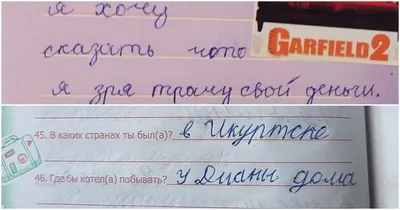 я хочу
сказать што
GARFIELD 2
я зря трачу свой деньги.
45. В каких странах ты был(а)? в Икуртске
46. Где бы хотел(а) побывать? у Дианы дома